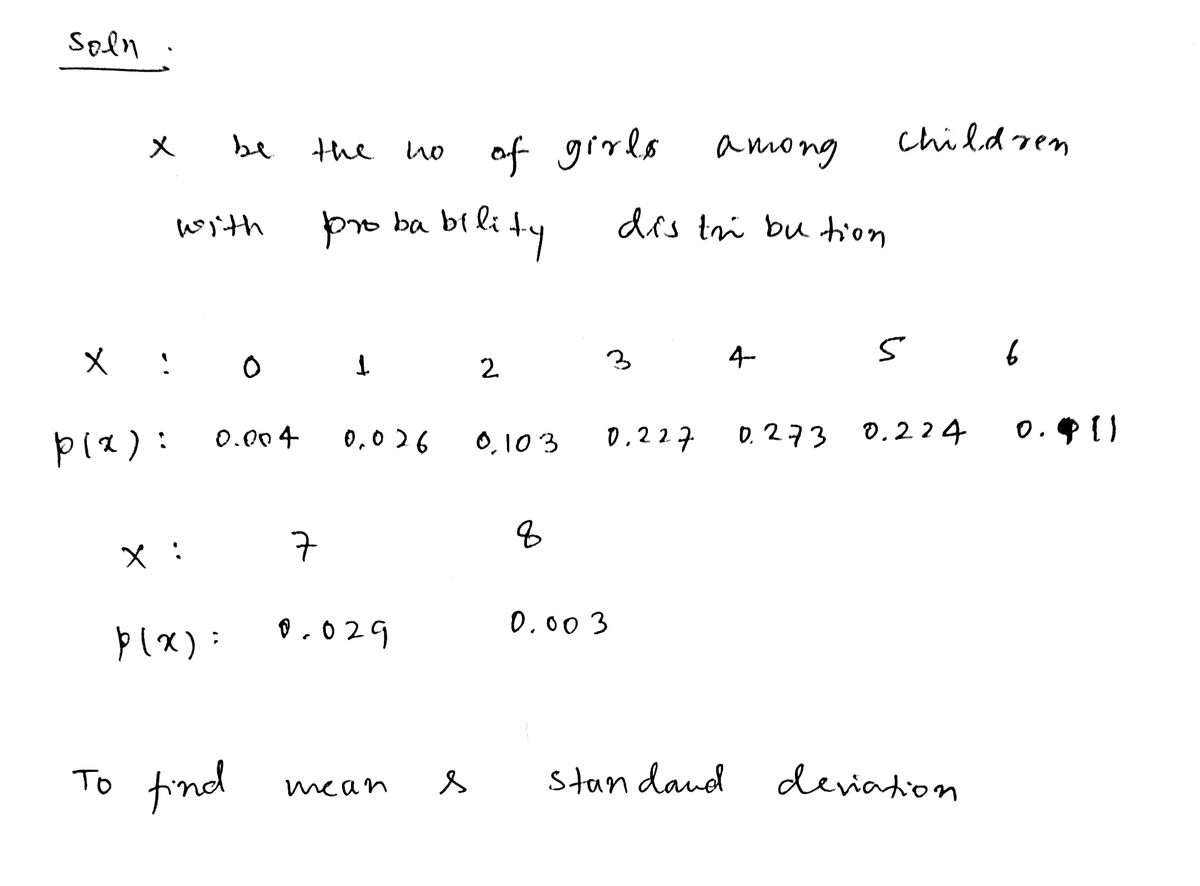 Soln.
x be the no of girls among children
with probability distribution
x : 0 1 2 3 4 5 6
p(x): 0.004 0.026 0.103 0.227 0.273 0.224 0.111
x : 7 8
p(x): 0.029 0.003
To find mean & standard deviation